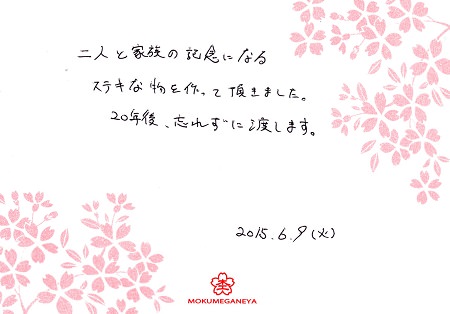 二人と家族の記念になる
ステキな物を作って頂きました。
20年後、忘れずに渡します。
2015.6.9(火)
MOKUMEGANEYA